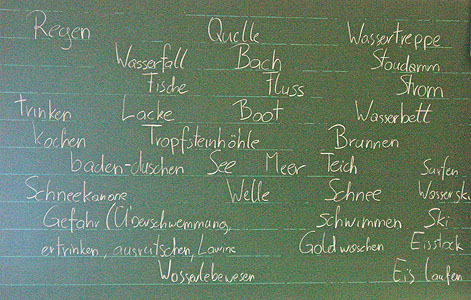 Regen Quelle Wassertreppe
Wasserfall Bach Staudamm
Fische Fluss Strom
trinken Lacke Boot Wasserbett
kochen Tropfsteinhöhle Brunnen
baden-duschen See Meer Teich Surfen
Schneekanone Welle Schnee Wasserski
Gefahr (Überschwemmung, schwimmen Ski
ertrinken, ausrutschen, Lawine Goldwaschen Eisstock
Wasserlebewesen Eis laufen